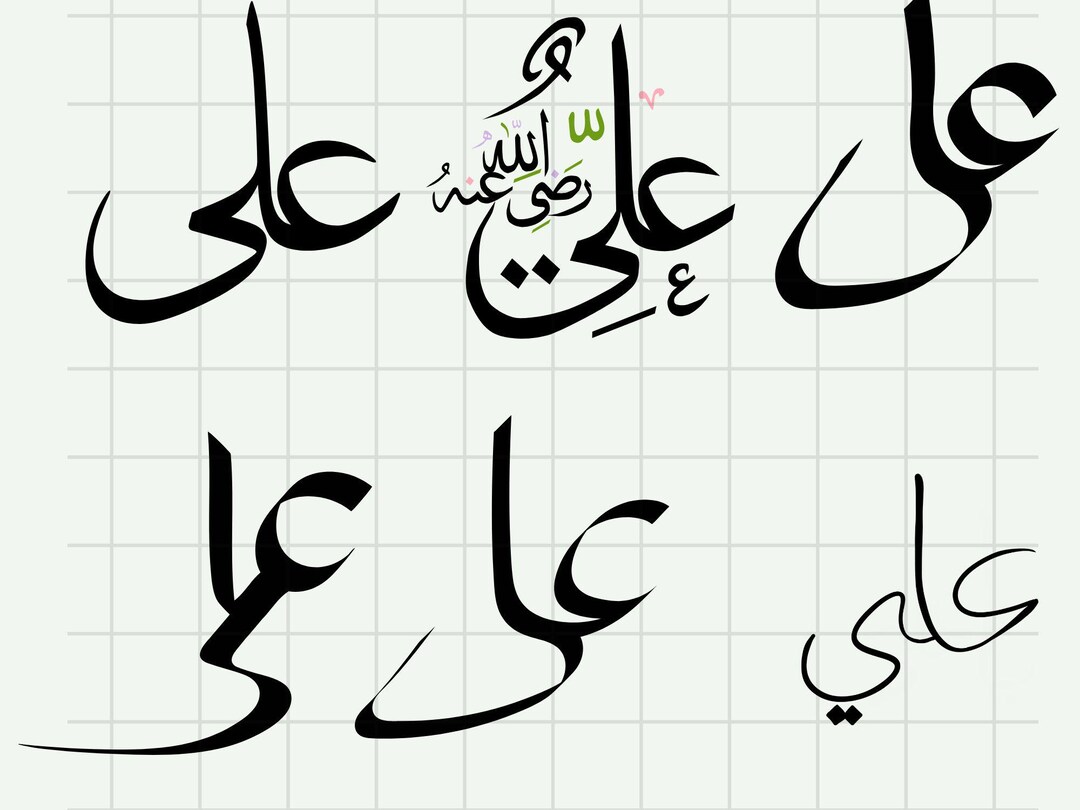 على عليٌّ رَضِيَ اللّٰهُ عَنهُ على
على على علي